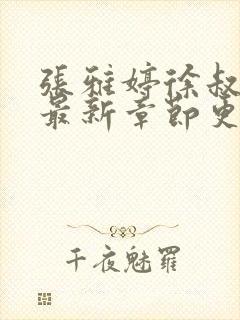 張雅婷徐叔
最新章節更
千夜魅羅